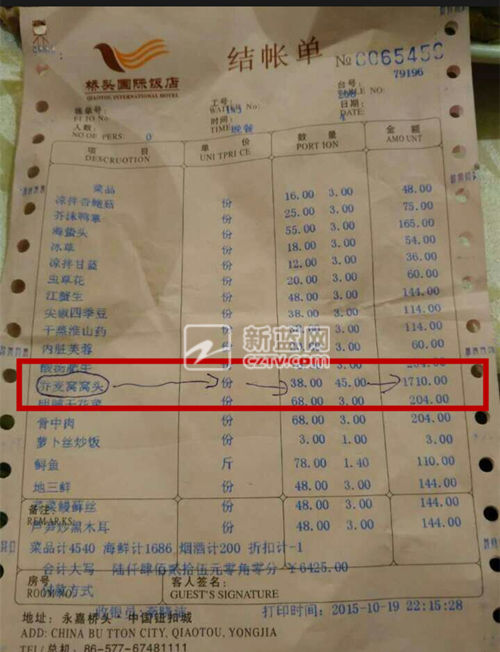 结帐单
№ 0065450
79196
桥头国际饭店
QIAOTOU INTERNATIONAL HOTEL
单号:
工号:
台号:
人数: 时间: 晚餐 日期:
NO OF PERS: 0 TIME:
项目 单价 数量 金额
DESCRUOTION UNITPRICE PORTION AMOUNT
菜品
凉拌杏鲍菇 份 16.00 3.00 48.00
芥沫鸭掌 份 25.00 3.00 75.00
海蜇头 份 55.00 3.00 165.00
冰草 份 18.00 3.00 54.00
凉拌甘蓝 份 12.00 3.00 36.00
虫草花 份 20.00 3.00 60.00
江蟹生 份 48.00 3.00 144.00
尖椒四季豆 份 38.00 3.00 114.00
干蒸淮山药 份 38.00 3.00 114.00
内脏芙蓉 份 3.00 60.00
新蓝网
cztv.com
荞麦窝窝头 份 38.00 45.00 1710.00
花菜 份 68.00 3.00 204.00
骨中肉 份 68.00 3.00 204.00
萝卜丝炒饭 份 3.00 1.00 3.00
鲟鱼 斤 78.00 1.40 110.00
地三鲜 份 48.00 3.00 144.00
鳗鲞丝 份 48.00 3.00 144.00
备注: 炒黑木耳 份 48.00 3.00 144.00
REMARKS
菜品计4540 海鲜计1686 烟酒计200 折扣计-1
合计大写 陆仟肆佰贰拾伍元零角零分 ¥6425.00
房号 付款方式 客人签名:
ROOM NO. GUEST'S SIGNATURE
收银员: 打印时间:2015-10-19 22:15:28
地址:永嘉桥头·中国钮扣城
ADD: CHINA BUTTON CITY, QIAOTOU, YONGJIA
TEL/总机: 86-577-67481111